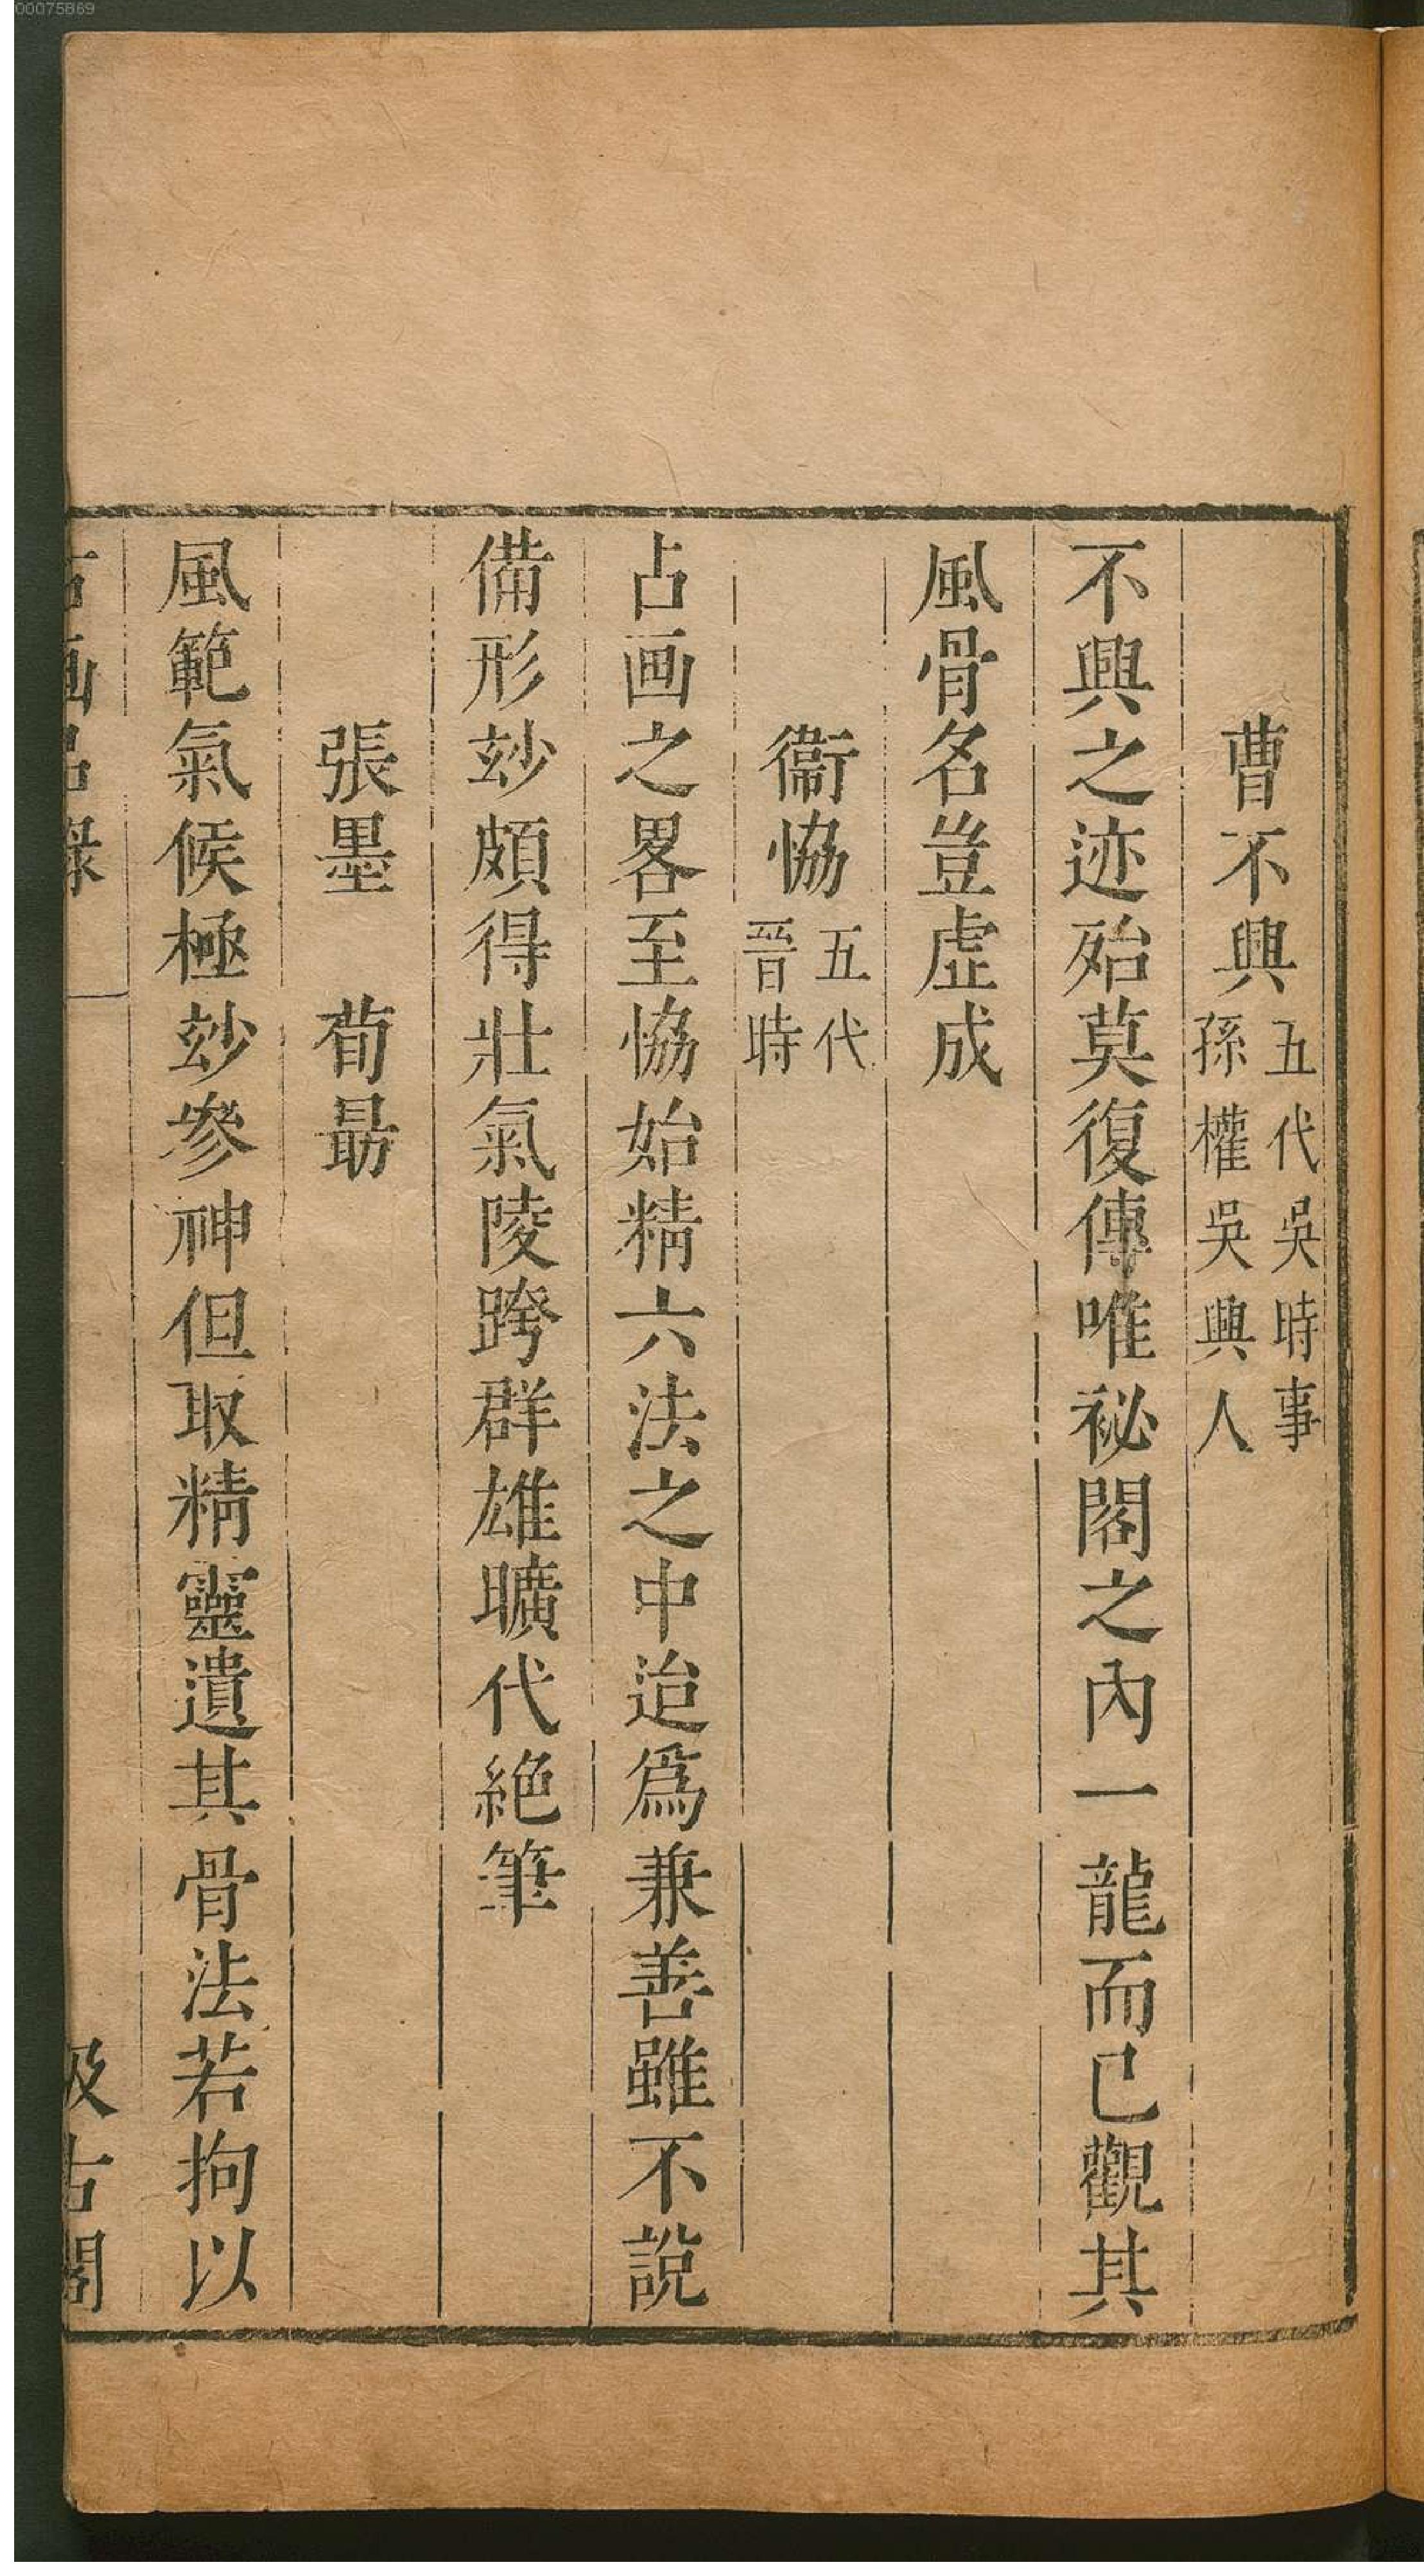 00075869
曹不興五代吳時事孫權吳興人
不興之迹殆莫復傳唯祕閣之內一龍而已觀其
風骨名豈虛成
衞恊五代晉時
占画之畧至恊始精六法之中迨爲兼善雖不說
備形玅頗得壯氣陵跨群雄曠代絶筆
張墨 荀朂
風範氣候極玅參神但取精靈遺其骨法若拘以
古画品錄 汲古閣